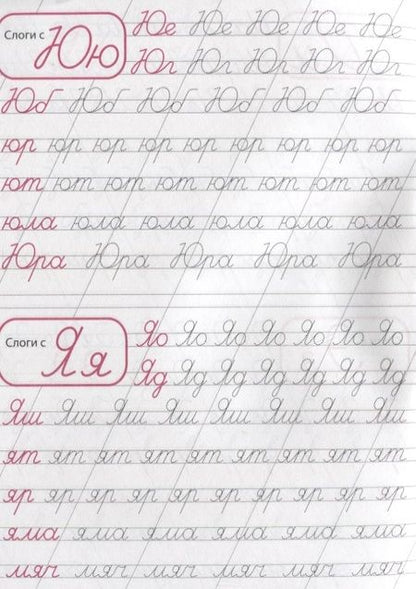 Слоги с Юю
Юе Юе Юе Юе Юе
Юг Юг Юг Юг Юг
Юб Юб Юб Юб Юб Юб
юр юр юр юр юр юр юр юр юр
ют ют ют ют ют ют ют ют
юла юла юла юла юла юла
Юра Юра Юра Юра Юра
Слоги с Яя
Яо Яо Яо Яо Яо Яо Яо
Яд Яд Яд Яд Яд Яд Яд
Яш Яш Яш Яш Яш Яш Яш Яш
ят ят ят ят ят ят ят ят ят
яр яр яр яр яр яр яр яр яр
яма яма яма яма яма яма
мяч мяч мяч мяч мяч мяч